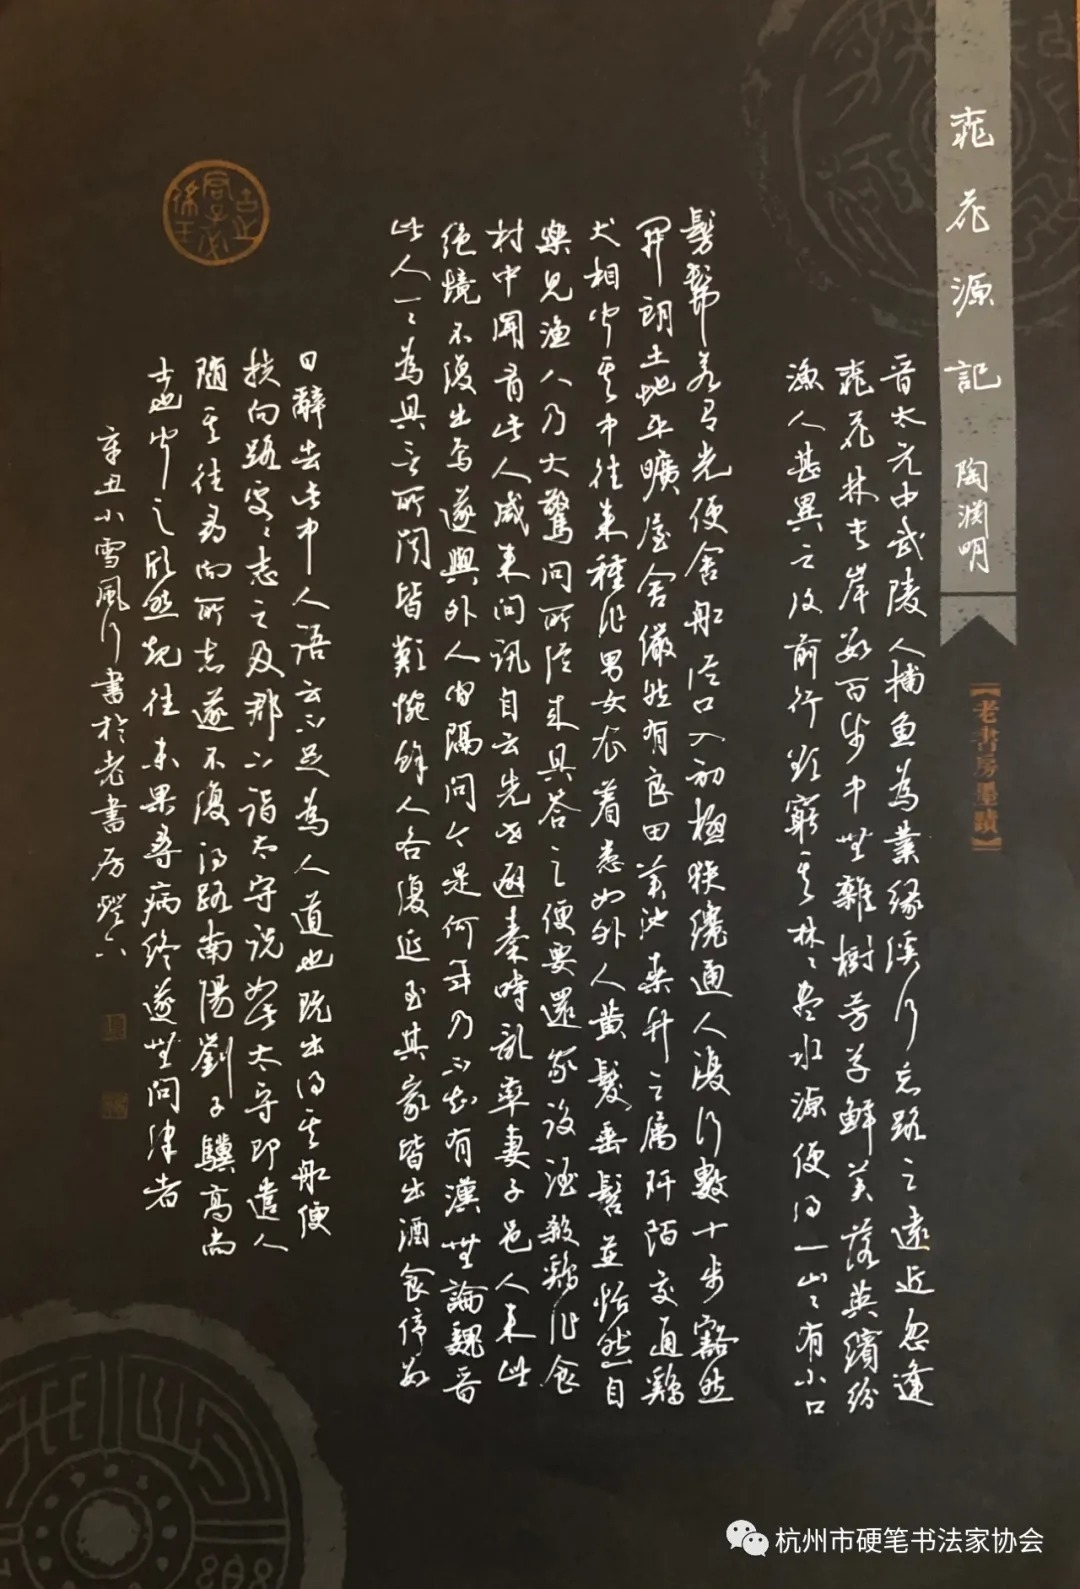 桃花源記 陶淵明
【老書房墨蹟】
晉太元中武陵人捕魚為業緣溪行忘路之遠近忽逢
桃花林夹岸數百步中無雜樹芳草鮮美落英繽紛
漁人甚異之復前行欲窮其林〻盡水源便得一山〻有小口
髣髴若有光便舍船從口入初極狹纔通人復行數十步豁然
開朗土地平曠屋舍儼然有良田美池桑竹之屬阡陌交通鷄
犬相聞其中往來種作男女衣着悉如外人黄髮垂髫並怡然自
樂見漁人乃大驚問所從来具答之便要還家設酒殺鷄作食
村中聞有此人咸来問訊自云先世避秦時亂率妻子邑人来此
絕境不復出焉遂與外人間隔問今是何年乃不知有漢無論魏晉
此人一〻為具言所聞皆歎惋餘人各復延至其家皆出酒食停數
日辭去此中人語云不足為人道也既出得其船便
扶向路處〻志之及郡下詣太守説如此太守即遣人
隨其往尋向所志遂不復得路南陽劉子驥高尚
士也聞之欣然規往未果尋病終遂無問津者
辛丑小雪風行書於老書房燈下
杭州市硬笔书法家协会